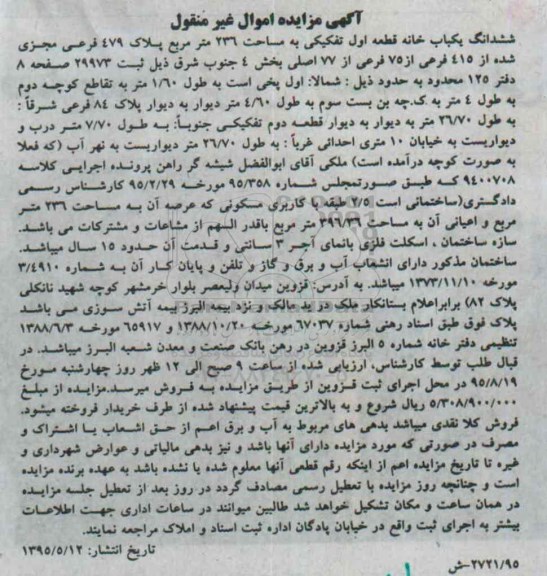 آگهی مزایده اموال غیر منقول
ششدانگ یکباب خانه قطعه اول تفکیکی به مساحت ۲۳۶ متر مربع پلاک ۴۷۹ فرعی مجزی
شده از ۴۱۵ فرعی از۷۵ فرعی از ۷۷ اصلی بخش ۴ جنوب شرق ذیل ثبت ۲۹۹۷۳ صفحه ۸
دفتر ۱۲۵ محدود به حدود ذیل : شمالا: اول پخی است به طول ۱/۶۰ متر به تقاطع کوچه دوم
به طول ۴ متر به ک.چه بن بست سوم به طول ۴/۶۰ متر دیوار به دیوار پلاک ۸۴ فرعی شرقاً :
به طول ۲۶/۷۰ متر به دیوار به دیوار قطعه دوم تفکیکی جنوباً: به طول ۷/۷۰ متر درب و
دیواریست به خیابان ۱۰ متری احداثی غرباً : به طول ۲۶/۷۰ متر دیواریست به نهر آب (که فعلا
به صورت کوچه درآمده است) ملکی آقای ابوالفضل شیشه گر راهن پرونده اجرایی کلاسه
۹۴۰۰۷۰۸ که طبق صورتمجلس شماره ۹۵/۳۵۸ مورخه ۹۵/۲/۲۹ کارشناس رسمی
دادگستری(ساختمانی است ۲/۵ طبقه با کاربری مسکونی که عرصه آن به مساحت ۲۳۶ متر
مربع و اعیانی آن به مساحت ۳۹۶/۳۶ متر مربع باقدر السهم از مشاعات و مشترکات می باشد.
سازه ساختمان ، اسکلت فلزی بانمای آجر ۳ سانتی و قدمت آن حدود ۱۵ سال میباشد.
ساختمان مذکور دارای انشعاب آب و برق و گاز و تلفن و پایان کار آن به شماره ۳/۴۹۱۰
مورخه ۱۳۷۳/۱۱/۱۰ میباشد. به آدرس: قزوین میدان ولیعصر بلوار خرمشهر کوچه شهید نانکلی
پلاک ۸۲) برابراعلام بستانکار ملک در ید مالک و نزد بیمه البرز بیمه آتش سوزی می باشد
پلاک فوق طبق اسناد رهنی شماره ۶۷۰۳۷ مورخه ۱۳۸۸/۱۰/۲۰ و ۶۵۹۱۷ مورخه ۱۳۸۸/۶/۳
تنظیمی دفتر خانه شماره ۵ البرز قزوین در رهن بانک صنعت و معدن شعبه البرز میباشد. در
قبال طلب توسط کارشناس، ارزیابی شده از ساعت ۹ صبح الی ۱۲ ظهر روز چهارشنبه مورخ
۹۵/۸/۱۹ در محل اجرای ثبت قزوین از طریق مزایده به فروش میرسد.مزایده از مبلغ
۵/۳۰۸/۹۰۰/۰۰۰ ریال شروع و به بالاترین قیمت پیشنهاد شده از طرف خریدار فروخته میشود.
فروش کلا نقدی میباشد بدهی های مربوط به آب و برق اعم از حق اشعاب یا اشتراک و
مصرف در صورتی که مورد مزایده دارای آنها باشد و نیز بدهی مالیاتی و عوارض شهرداری و
غیره تا تاریخ مزایده اعم از اینکه رقم قطعی آنها معلوم شده یا نشده باشد به عهده برنده مزایده
است و چنانچه روز مزایده با تعطیل رسمی مصادف گردد در روز بعد از تعطیل جلسه مزایده
در همان ساعت و مکان تشکیل خواهد شد طالبین میتوانند در ساعات اداری جهت اطلاعات
بیشتر به اجرای ثبت واقع در خیابان پادگان اداره ثبت اسناد و املاک مراجعه نمایند.
تاریخ انتشار: ۱۳۹۵/۵/۱۲
۲۷۲۱/۹۵-ش